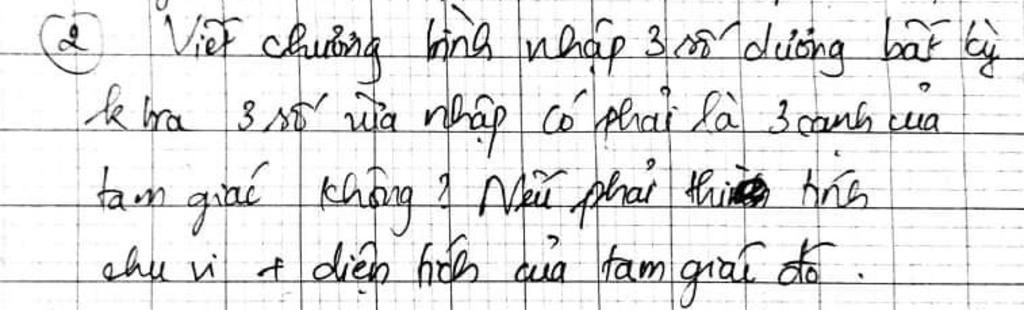 ② Viết chương trình nhập 3 số dương bất kỳ
k tra 3 số vừa nhập có phải là 3 cạnh của
tam giác không? Nếu phải thì tính
chu vi + diện tích của tam giác đó.